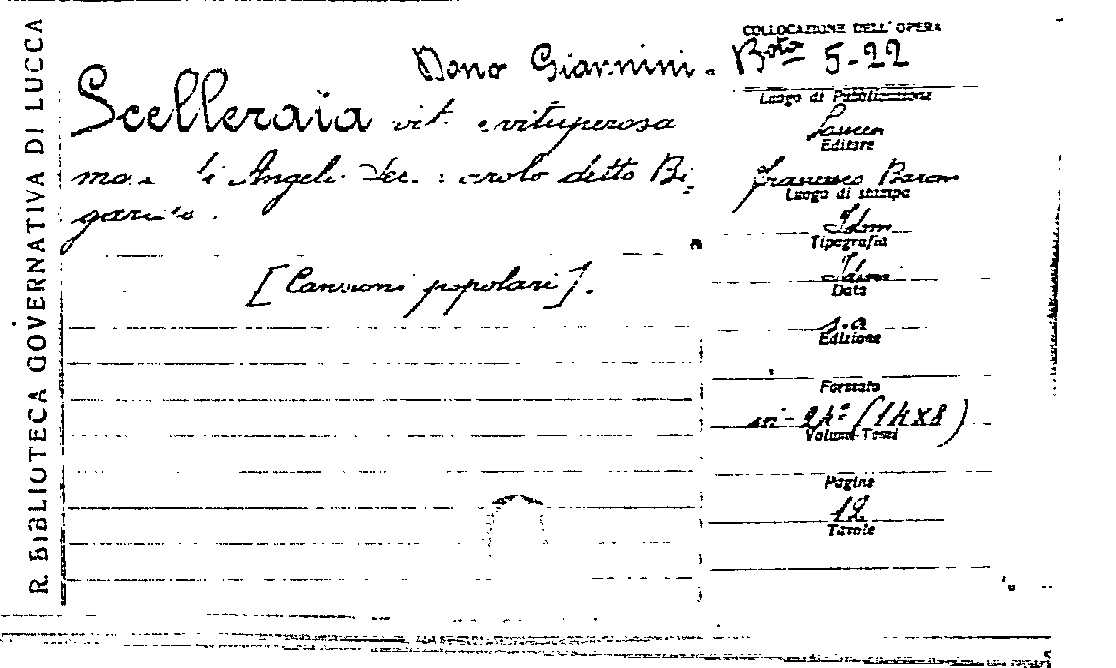 R. BIBLIOTECA GOVERNATIVA DI LUCCA
COLLOCAZIONE DELL'OPERA
Dono Giannini. Bta 5-22
Scelleraia vit. e vituperosa
di Angelo detto Bi-
[Canzoni popolari].
Luogo di Pubblicazione
Lucca
Editore
Francesco Baroni
Luogo di stampa
Idem
Tipografia
Idem
Data
s.a
Edizione
Formato
in-24º (14x8)
Volumi-Tomi
Pagine
12
Tavole